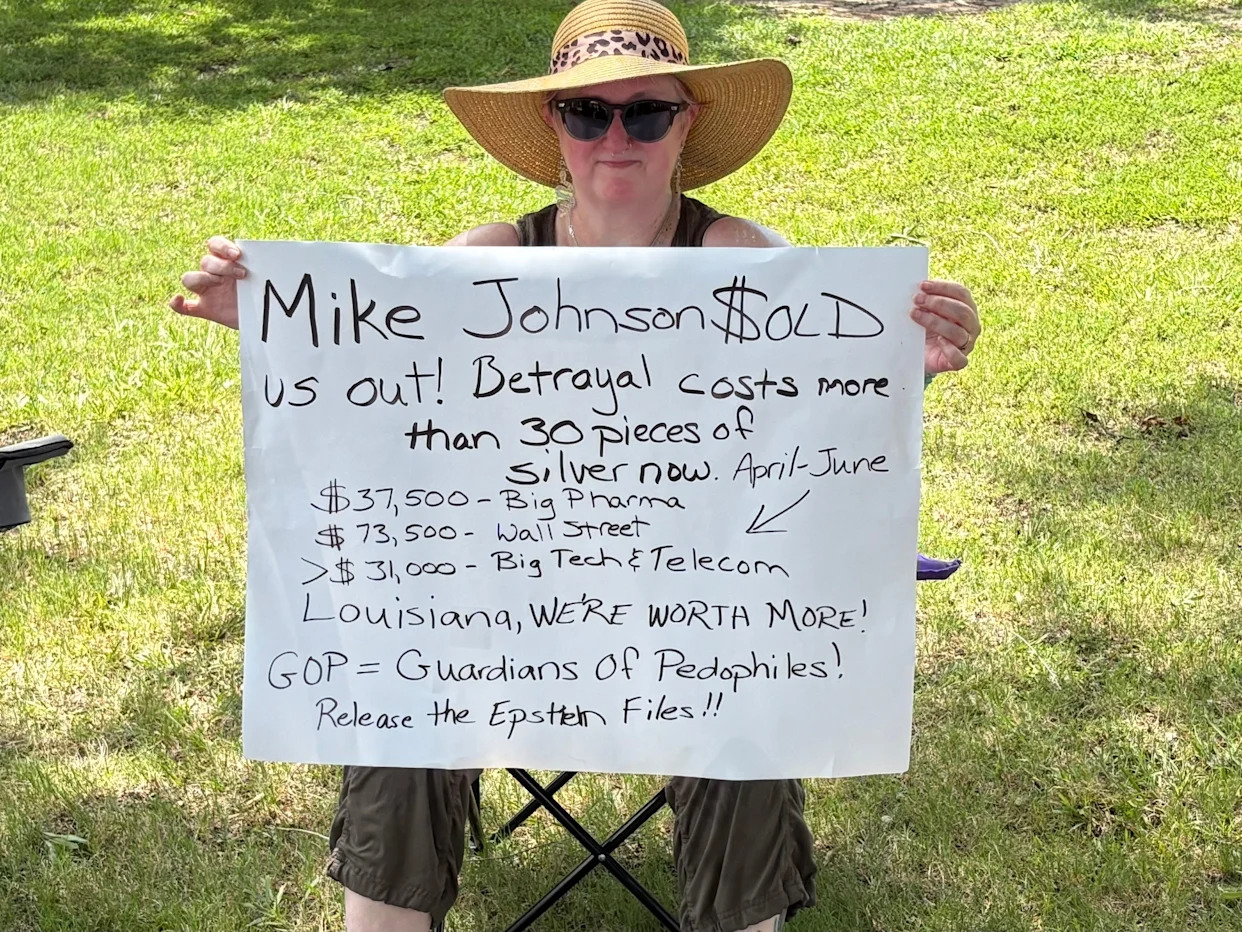 Mike Johnson $OLD
us out! Betrayal costs more
than 30 pieces of
silver now. April-June
$37,500 - Big Pharma
$ 73,500 - Wall Street
>$ 31,000 - Big Tech & Telecom
Louisiana, WE'RE WORTH MORE!
GOP = Guardians Of Pedophiles!
Release the Epstein Files!!